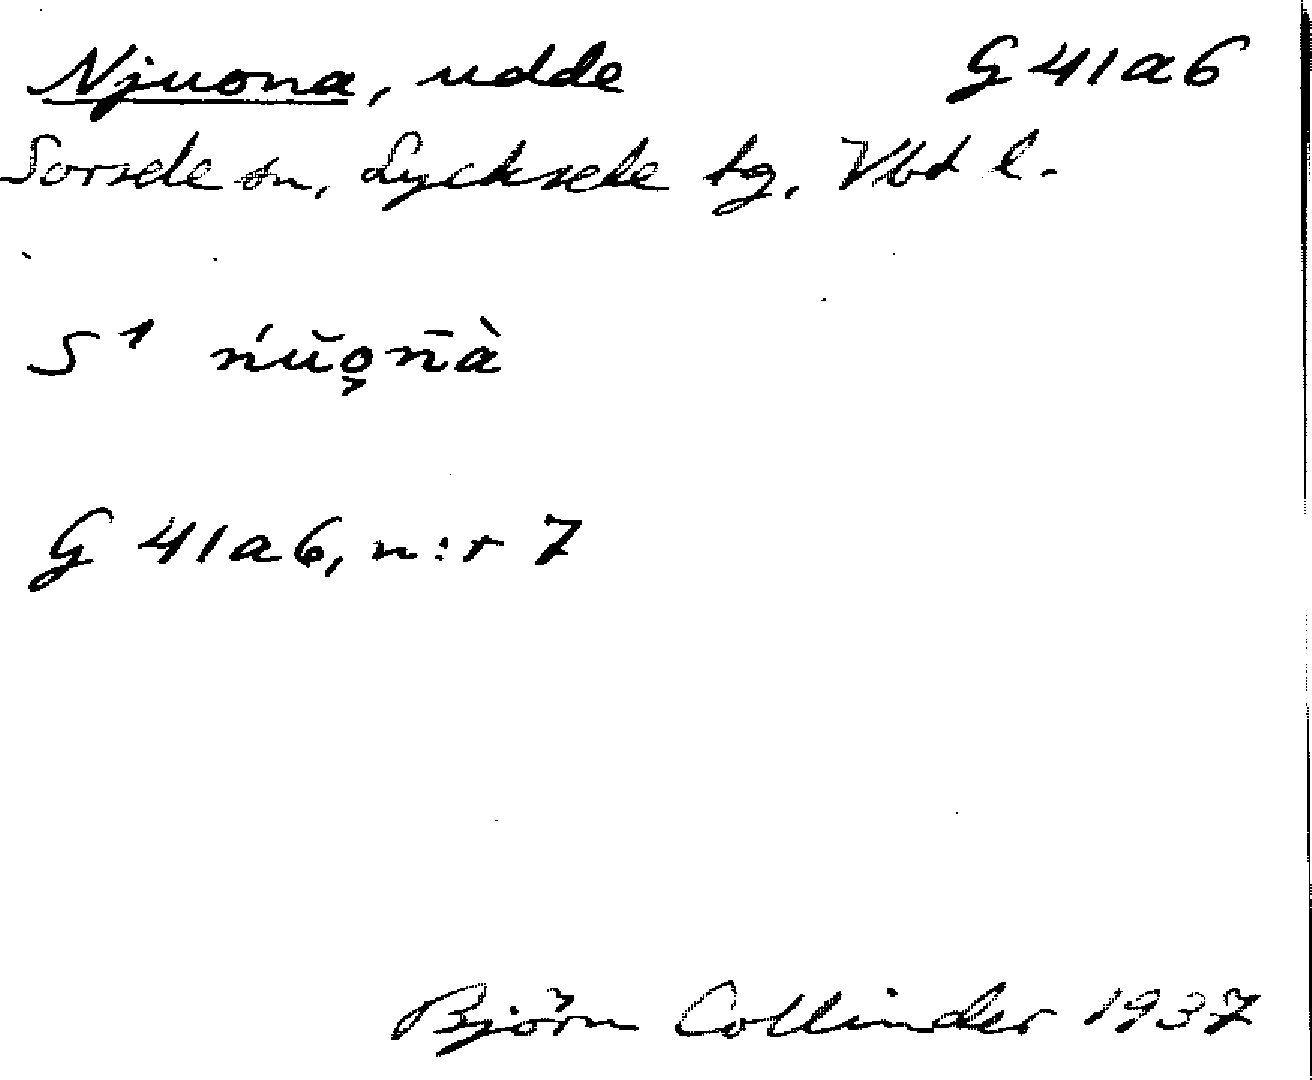 Njuona, udde G 41 a 6
Sorsele sn, Lycksele tg, Vbt l.
S 1 ńŭo̧n̄à
G 41 a 6, n:r 7
Björn Collinder 1937